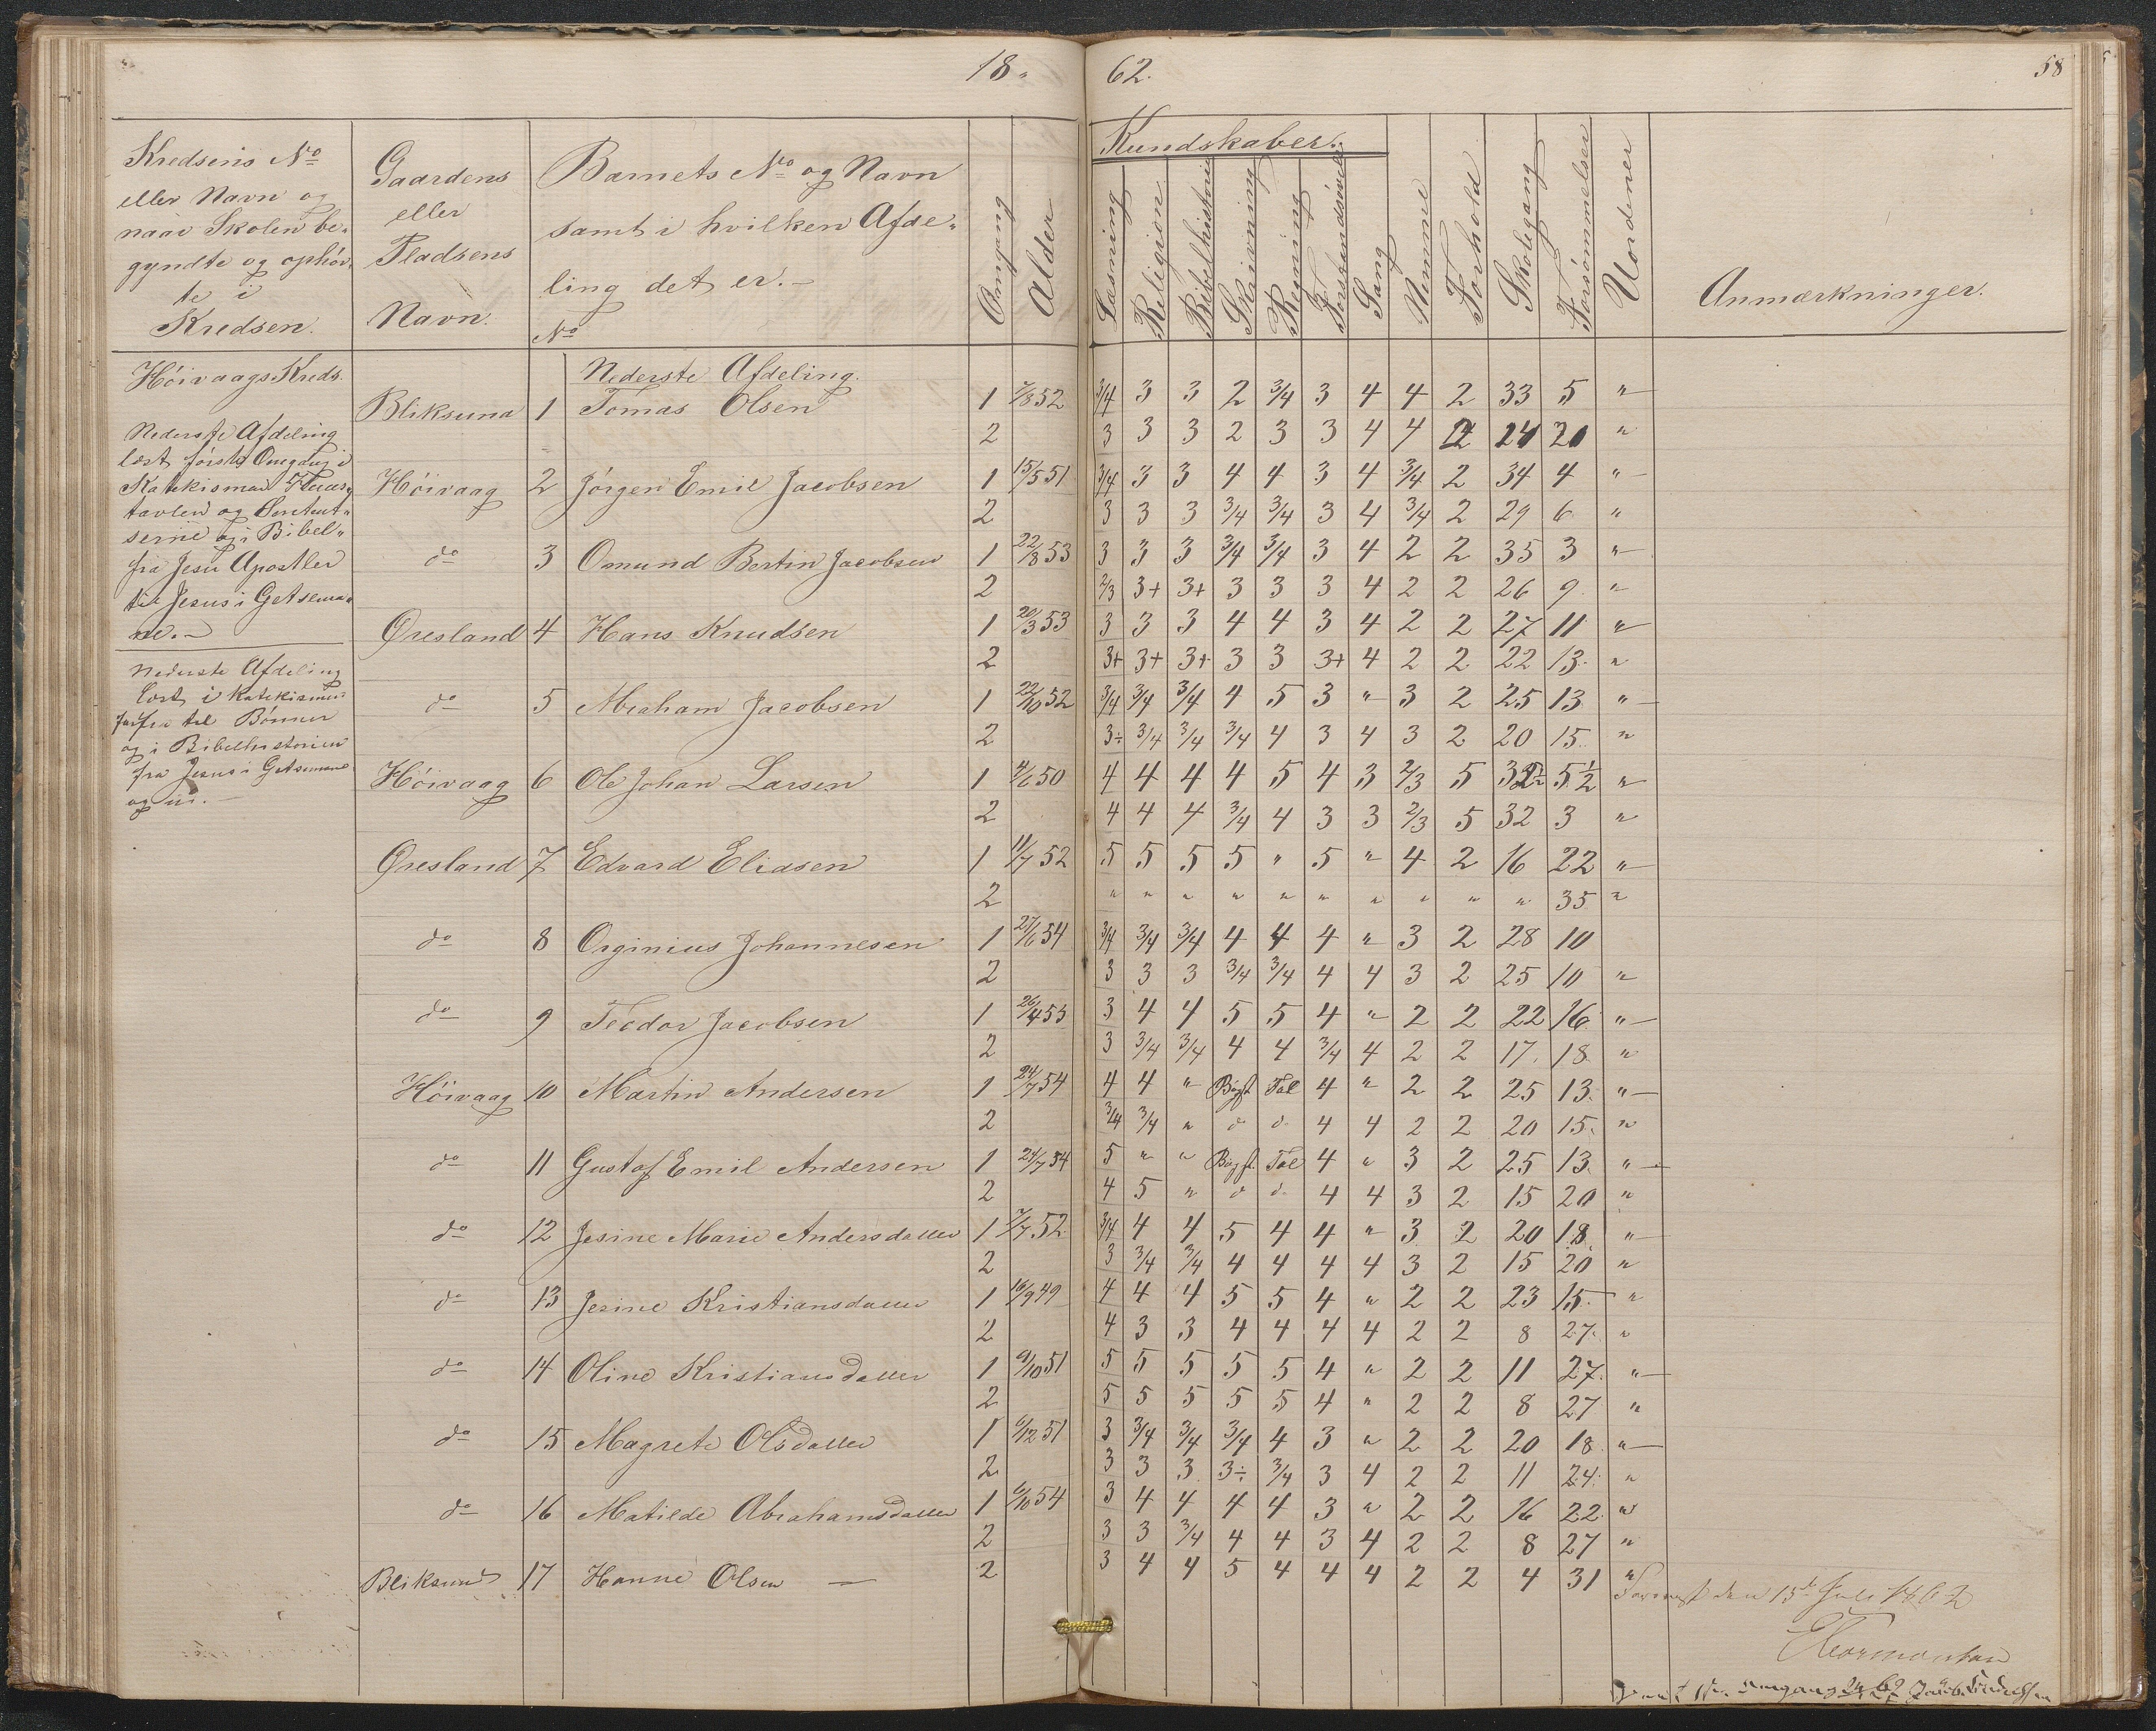 18 62. 58
Kredsens No eller Navn og naar Skolen begyndte og ophørte i Kredsen.
Gaardens eller Pladsens Navn.
Barnets No og Navn samt i hvilken Afdeling det er.
No
Omgang
Alder
Kundskaber.
Læsning
Religion
Bibelhistorie
Skrivning
Regning
Forstandsøvelse
Sang
Nemme
Forhold
Skolegang
Forsømmelser
Uordener
Anmærkninger.
Høivaags Kreds.
Nederste Afdeling
læst første Omgang i
Katekismen
tavlen og
og i Bibel„
fra Jesu Apostler
til Jesus i Getsema„
ne.
Nederste Afdeling
læst i Katekismus
fra til Bønner
og i Bibelhistorien
fra Jesus i Getsemane
og ud.
Nederste Afdeling.
Bliksund 1 Tomas Olsen 1 7/8 52 3/4 3 3 2 3/4 3 4 4 2 33 5 "
2 3 3 3 2 3 3 4 4 2 24 20 "
Høivaag 2 Jørgen Emil Jacobsen 1 15/5 51 3/4 3 3 4 4 3 4 3/4 2 34 4 "
2 3 3 3 3/4 3/4 3 4 3/4 2 29 6 "
do 3 Omund Bertin Jacobsen 1 22/8 53 3 3 3 3/4 3/4 3 4 2 2 35 3 "
2 2/3 3+ 3+ 3 3 3 4 2 2 26 9 "
Øresland 4 Hans Knudsen 1 20/3 53 3 3 3 4 4 3 4 2 2 27 11 "
2 3+ 3+ 3+ 3 3 3+ 4 2 2 22 13 "
do 5 Abraham Jacobsen 1 22/10 52 3/4 3/4 3/4 4 5 3 " 3 2 25 13 "
2 3÷ 3/4 3/4 3/4 4 3 4 3 2 20 15 "
Høivaag 6 Ole Johan Larsen 1 4/6 50 4 4 4 4 5 4 3 2/3 5 32½ 5½ "
2 4 4 4 3/4 4 3 3 2/3 5 32 3 "
Øresland 7 Edvard Eliasen 1 11/7 52 5 5 5 5 " 5 " 4 2 16 22 "
2 " " " " " " " " " " 35 "
do 8 Orginius Johannesen 1 27/6 54 3/4 3/4 3/4 4 4 4 " 3 2 28 10
2 3 3 3 3/4 3/4 4 4 3 2 25 10 "
do 9 Teodor Jacobsen 1 26/4 53 3 4 4 5 5 4 " 2 2 22 16 "
2 3 3/4 3/4 4 4 3/4 4 2 2 17 18 "
Høivaag 10 Martin Andersen 1 24/7 54 4 4 " Bogst. Tal 4 " 2 2 25 13 "
2 3/4 3/4 " d d 4 4 2 2 20 15 "
do 11 Gustaf Emil Andersen 1 24/7 54 5 " " Bogst. Tal 4 " 3 2 25 13 "
2 4 5 " d d 4 4 3 2 15 20 "
do 12 Jesine Marie Andersdatter 1 7/7 52 3/4 4 4 5 4 4 " 3 2 20 18 "
2 3 3/4 3/4 4 4 4 4 3 2 15 20 "
do 13 Jesine Kristiansdatter 1 16/9 49 4 4 4 5 5 4 " 2 2 23 15 "
2 4 3 3 4 4 4 4 2 2 8 27 "
do 14 Oline Kristiansdatter 1 9/10 51 5 5 5 5 5 4 " 2 2 11 27 "
2 5 5 5 5 5 4 " 2 2 8 27 "
do 15 Magrete Olsdatter 1 6/12 51 3 3/4 3/4 3/4 4 3 " 2 2 20 18 "
2 3 3 3 3÷ 3/4 3 4 2 2 11 24 "
do 16 Matilde Abrahamsdatter 1 6/10 54 3 4 4 4 4 3 " 2 2 16 22 "
2 3 3 3/4 4 4 3 4 2 2 8 27 "
Bliksund 17 Hanne Olsen — 2 3 4 4 5 4 4 4 2 2 4 31 "
den 15de Juli 1862